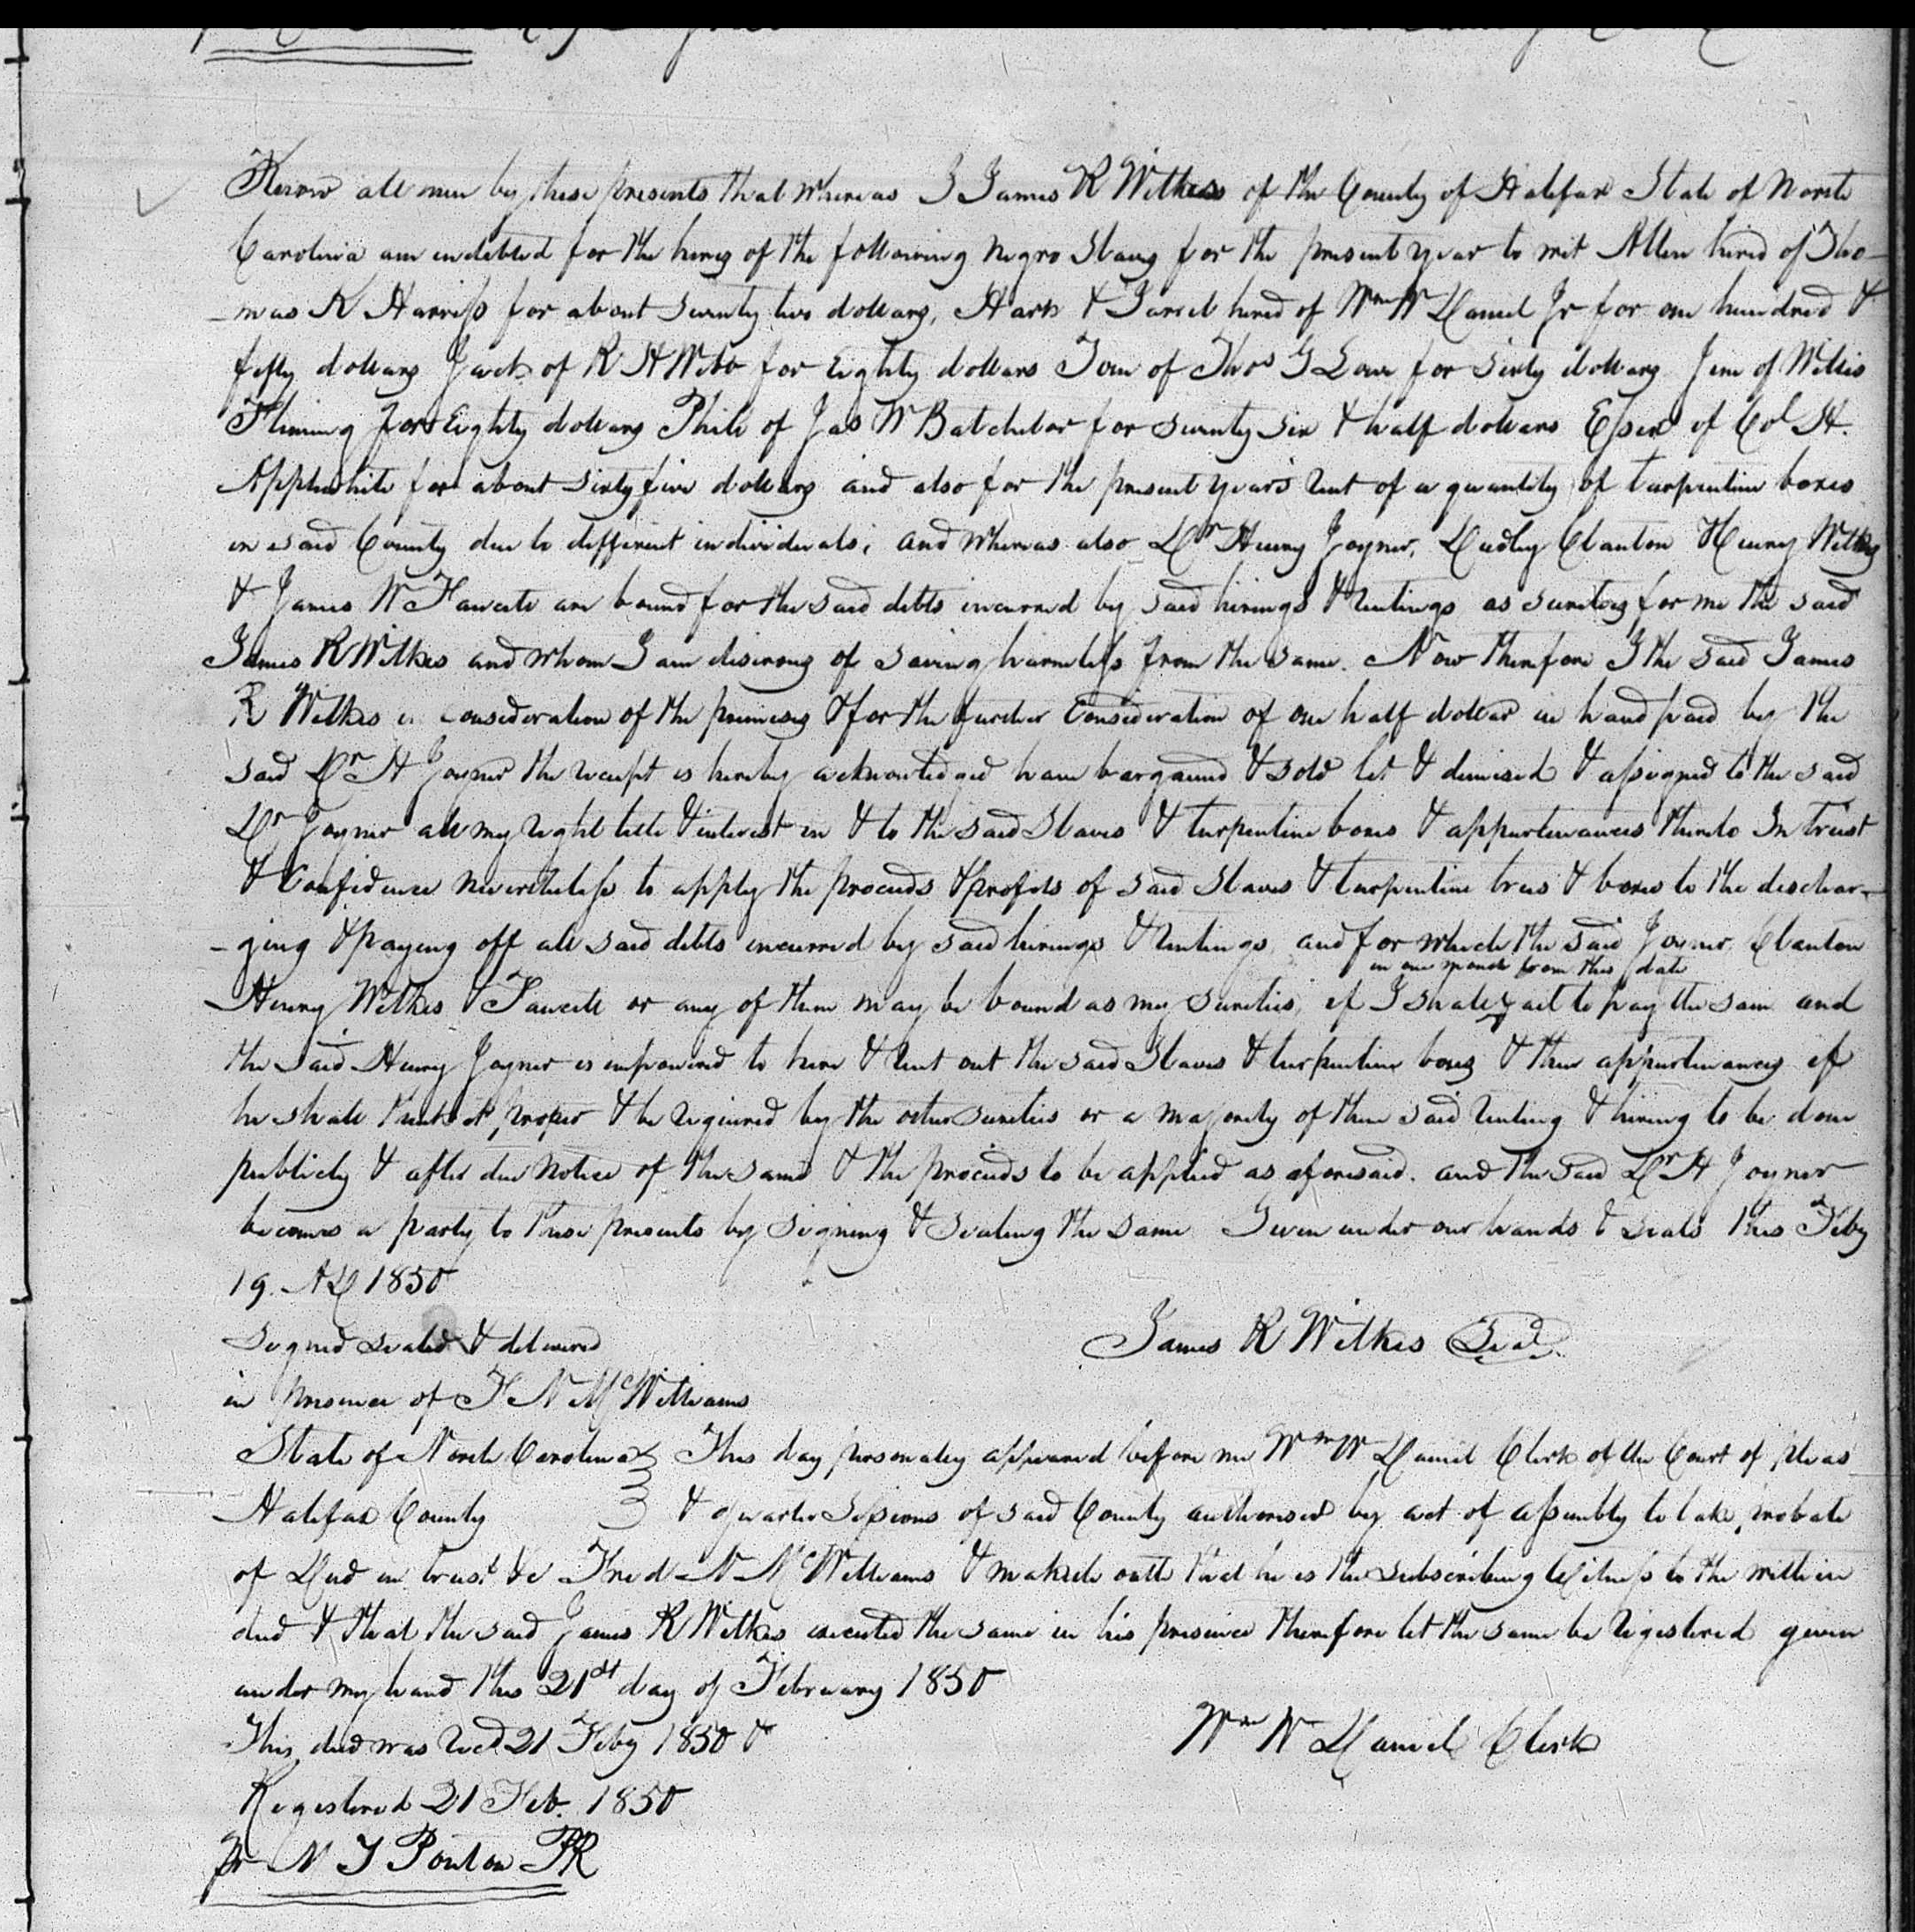 Know all men by these presents that whereas I James R Wilkes of the County of Halifax State of North
Carolina am indebted for the hires of the following negro Slaves for the present year to wit Allen hired of Tho-
-mas K Harriss for about seventy two dollars, Hark & Jarrel hired of Wm W Daniel Jr for one hundred &
fifty dollars Jack of R H Webb for Eighty dollars Tom of Thos G Lowe for sixty dollars Jim of Willis
Fleming for Eighty dollars Phil of Jas W Batchelor for seventy six & half dollars Essex of Col H.
Applewhite for about sixty five dollars and also for the present years rent of a quantity of turpentine boxes
in said County due to different individuals; and whereas also Dr Henry Joyner, Dudley Clanton Henry Wilkes
& James W Faucett are bound for the said debts incurred by said hirings & rentings as sureties for me the said
James R Wilkes and whom I am desirous of saving harmless from the same. Now therefore I the said James
R Wilkes in consideration of the premises & for the further consideration of one half dollar in hand paid by the
said Dr H Joyner the receipt is hereby acknowledged have bargained & sold let & demised & assigned to the said
Dr Joyner all my right title & interest in & to the said Slaves & turpentine boxes & appurtenances thereto In trust
& confidence nevertheless to apply the proceeds & profits of said Slaves & turpentine trees & boxes to the dischar-
-ging & paying off all said debts incurred by said hirings & rentings and for which the said Joyner, Clanton
in one month from this date
Henry Wilkes & Faucett or any of them may be bound as my sureties, if I shall fail to pay the same and
the said Henry Joyner is empowered to hire & rent out the said Slaves & turpentine boxes & their appurtenances if
he shall think it proper & be required by the other sureties or a majority of them said renting & hiring to be done
publicly & after due notice of the same & the proceeds to be applied as aforesaid. and the said Dr H Joyner
becomes a party to these presents by signing & sealing the same Given under our hands & seals this Feby
19. AD 1850
Signed sealed & delivered
James R Wilkes Seal
in presence of F N McWilliams
State of North Carolina } This day personally appeared before me Wm W Daniel Clerk of the Court of pleas
Halifax County } & quarter Sessions of said County authorised by act of assembly to take probate
of Deed in trust &c Fred N McWilliams & maketh oath that he is the subscribing witness to the within
deed & that the said James R Wilkes executed the same in his presence therefore let the same be registered given
under my hand this 21st day of February 1850
Wm W Daniel Clerk
This deed was Recd 21 Feby 1850 &
Registered 21 Feb. 1850
pr N T Ponton PR